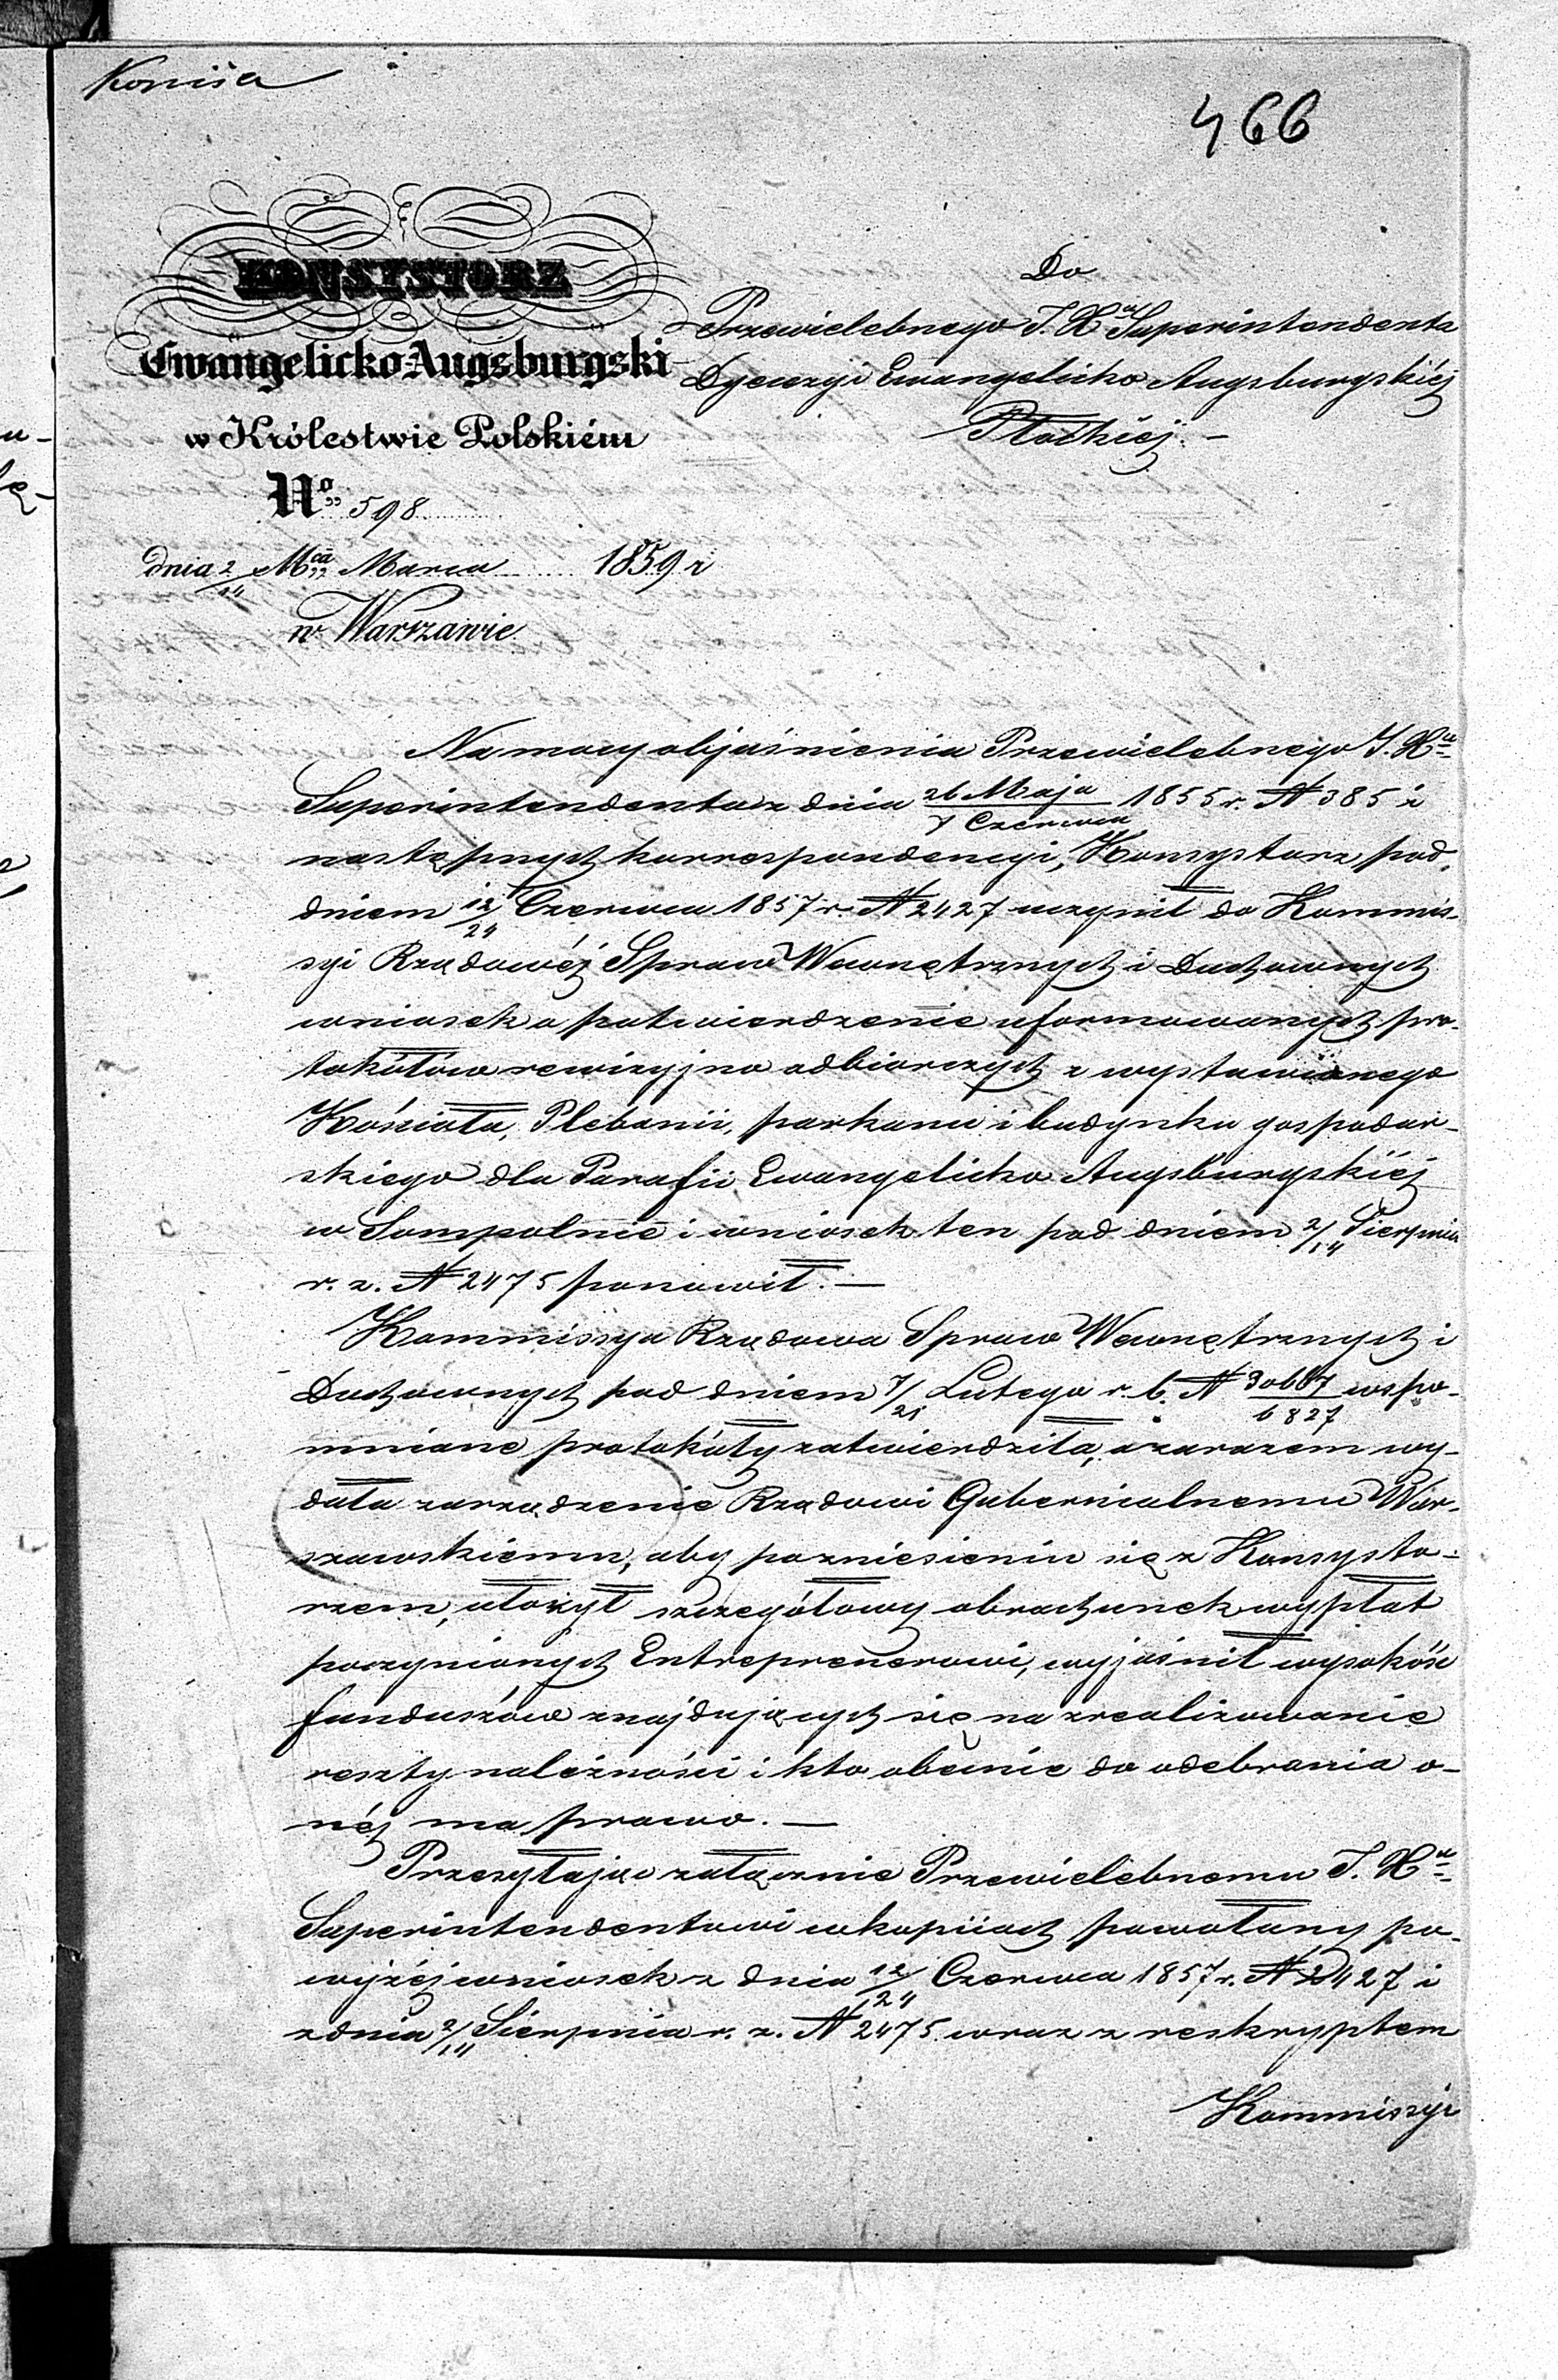 Kopija
466
KONSYSTORZ
Ewangelicko Augsburgski
w Królestwie Polskiém
No 598
dnia 2/14 Mca Marca 1859 r
w Warszawie
Do
Przewielebnego J. Xa Superintendenta
Dyecezyi Ewangelicko Augsburgskiéj
Płockiéj. –
Na mocy objaśnienia Przewielebnego J. Xa
Superintendenta z dnia 26 Maja/7 Czerwca 1855 r. N 385 i
następnych korrespondencyi, Konsystorz pod
dniem 12/24 Czerwca 1857 r. N 2427 uczynił do Kommis-
syi Rządowéj Spraw Wewnętrznych i Duchownych
wniosek o potwierdzenie uformowanych pro-
tokółów rewizyjno odbiorczych z wystawionego
Kościoła, Plebanii, parkanu i budynku gospodar-
skiego dla Parafii Ewangelicko Augsburgskiéj
w Sompolnie i wniosek ten pod dniem 2/14 Sierpnia
r. z. N 2475 ponowił. –
Kommissya Rządowa Spraw Wewnętrznych i
Duchownych pod dniem 9/21 Lutego r. b. N 30667/6827 wspo-
mniane protokóły zatwierdziła, a zarazem wy-
dała zarządzenie Rządowi Gubernialnemu War-
szawskiemu, aby po zniesieniu się z Konsysto-
rzem, ułożył szczegółowy obrachunek wypłat
poczynionych Entreprenerowi, wyjaśnił wysokość
funduszów znajdujących się na zrealizowanie
reszty należności i kto obecnie do odebrania o-
néj ma prawo. –
Przesyłając załącznie Przewielebnemu J. Xu
Superintendentowi w kopiiach powołany po-
wyżéj wniosek z dnia 12/24 Czerwca 1857 r. N 2427 i
z dnia 2/14 Sierpnia r. z. N 2475 wraz z reskryptem
Kommissyi